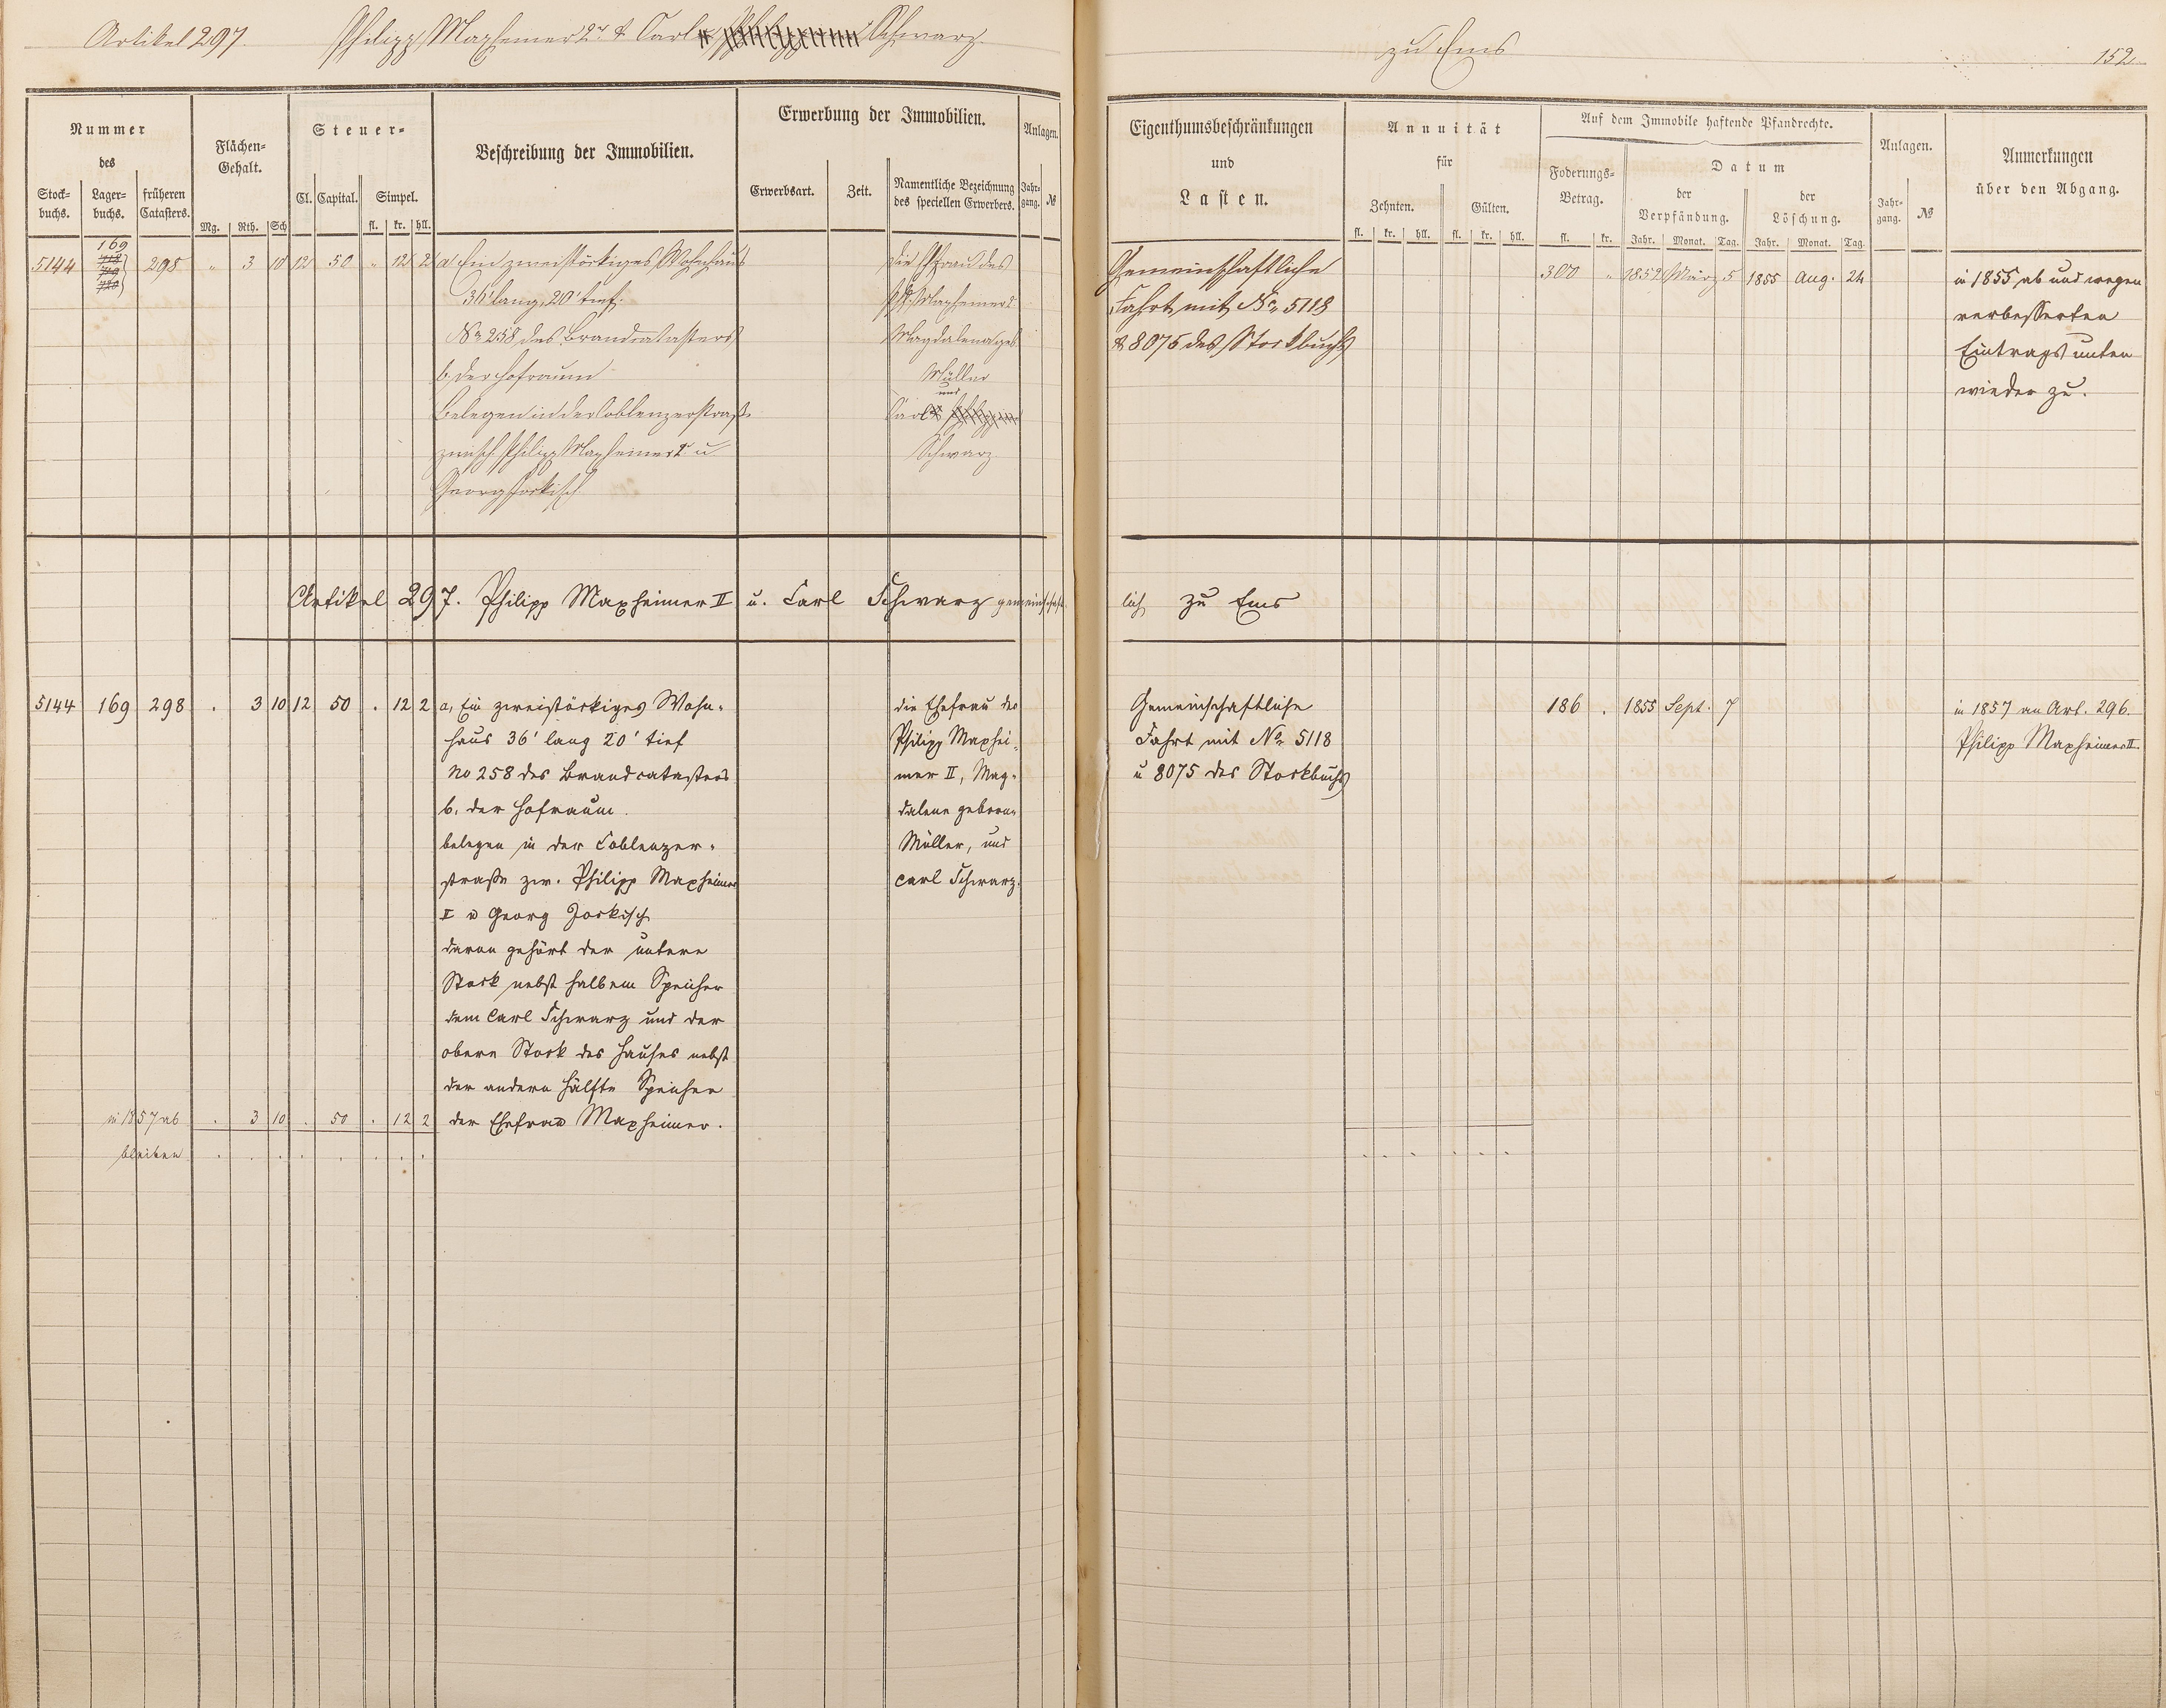 Artikel 297. Philipp Maxheimer 2r & Carl Schwarz
zu Ems 152
Nummer
des
Stock-
buchs.
Lager-
buchs.
früheren
Catasters.
Flächen-
Gehalt.
Mg. Rth. Sch
Steuer-
Cl. Capital. Simpel.
fl. kr. hll.
Beschreibung der Immobilien.
Erwerbung der Immobilien.
Erwerbsart. Zeit.
Namentliche Bezeichnung
des speciellen Erwerbers.
Anlagen.
Jahr-
gang. №
Eigenthumsbeschränkungen
und
Lasten.
Annuität
für
Zehnten. Gülten.
fl. kr. hll. fl. kr. hll.
Auf dem Immobile haftende Pfandrechte.
Foderungs-
Betrag.
fl. kr.
Datum
der
Verpfändung.
Jahr. Monat. Tag.
der
Löschung.
Jahr. Monat. Tag.
Anlagen.
Jahr-
gang. №
Anmerkungen
über den Abgang.
169
5144 718 719 720 298 " 3 10 12 50 " 12 2
a, Ein zweistöckiges Wohnhaus
36' lang, 20' tief.
No 258 des Brandcatasters
b, der Hofraum
belegen in der Coblenzerstraße
zwisch Philipp Maxheimer 2r u
Georg Jockisch
die Ehefrau des
Ph. Maxheimer 2r
Magdalena geb
Müller
und
Carl
Schwarz
Gemeinschaftliche
Fahrt mit No 5118
& 8075 des Stockbuchs
300 " 1852 März 5 1855 Aug. 24
in 1855 ab und wegen
verbesserten
Eintrags unten
wieder zu.
Artikel 297. Philipp Maxheimer II u. Carl Schwarz gemeinschaft-
lich zu Ems
5144 169 298 . 3 10 12 50 . 12 2
a, Ein zweistöckiges Wohn-
haus 36' lang 20' tief
No 258 des Brandcatasters
b. der Hofraum.
belegen in der Coblenzer-
straße zw. Philipp Maxheimer
II u Georg Jockisch
davon gehört der untere
Stock nebst halbem Speicher
dem Carl Schwarz und der
obere Stock des Hauses nebst
der andern Hälfte Speicher
der Ehefrau Maxheimer.
die Ehefrau des
Philipp Maxhei-
mer II, Mag-
dalene geborn.
Müller, und
Carl Schwarz.
Gemeinschaftliche
Fahrt mit No 5118
u 8075 des Stockbuchs
186 . 1855 Sept. 7
in 1857 an Art. 296.
Philipp Maxheimer II.
in 1857 ab . 3 10 . 50 . 12 2
bleiben . . . . . . . .